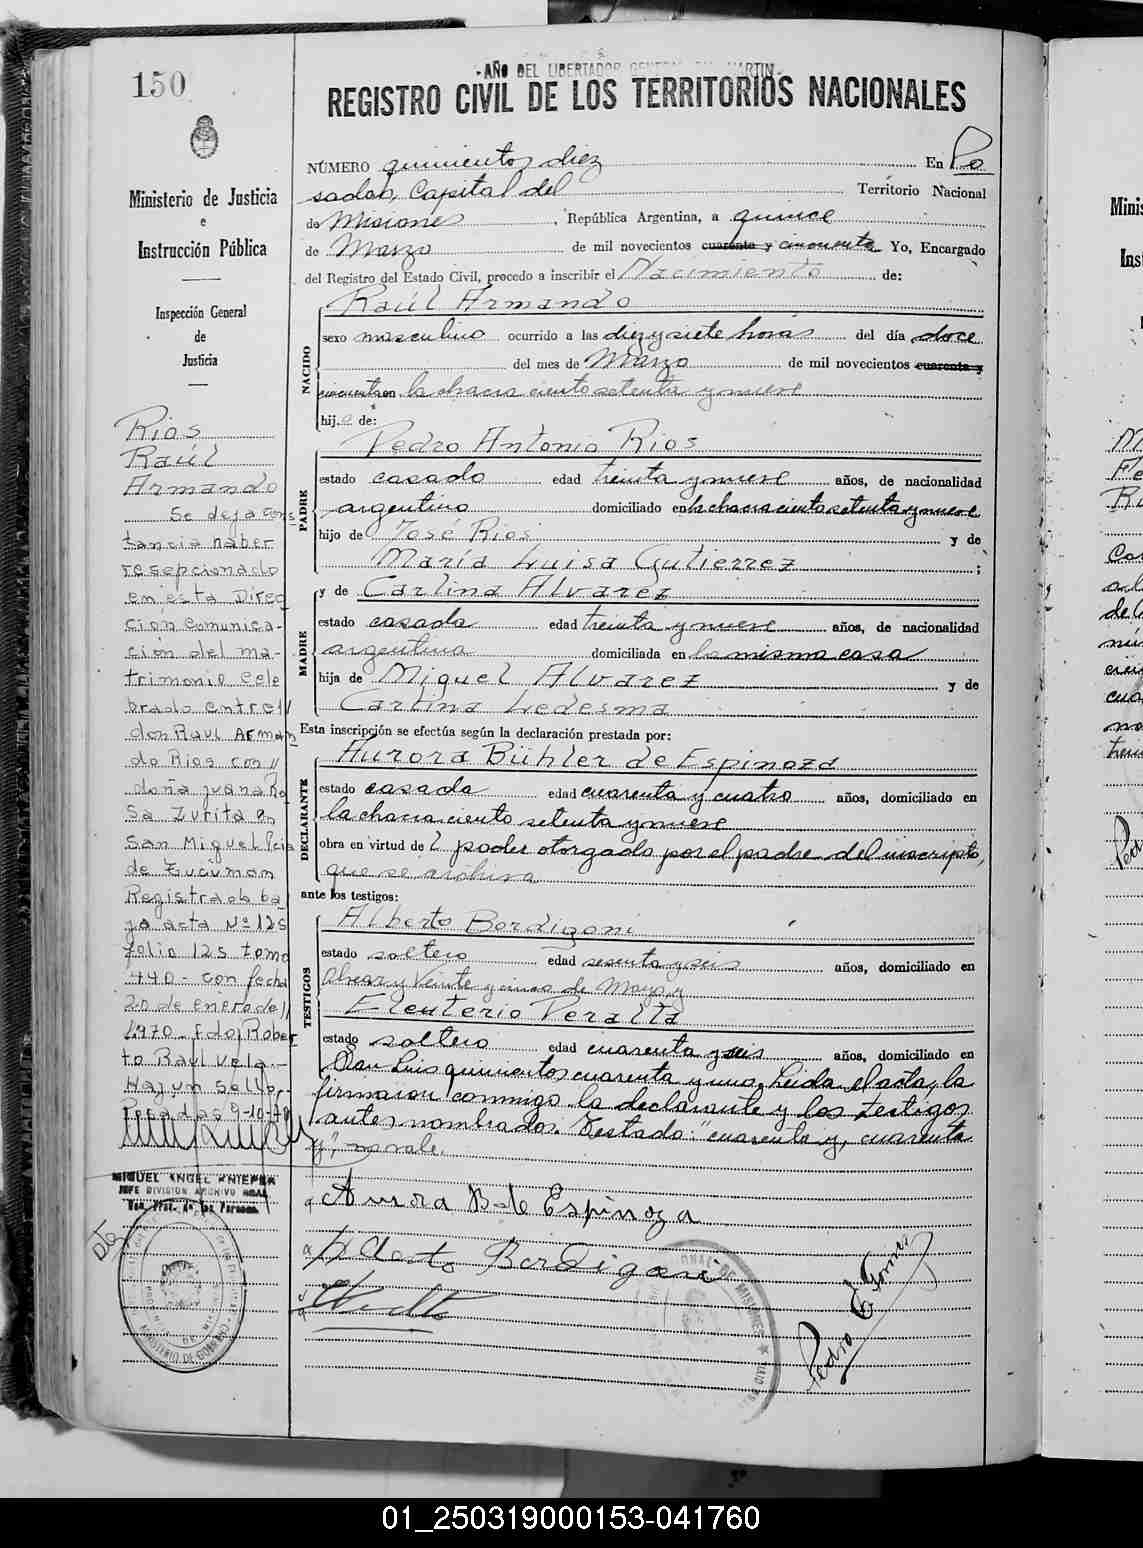 150
-AÑO DEL LIBERTADOR GENERAL SAN MARTIN-
REGISTRO CIVIL DE LOS TERRITORIOS NACIONALES
Ministerio de Justicia
e
Instrucción Pública
Inspección General
de
Justicia
Rios
Raúl
Armando
Se deja cons
tancia haber
resepcionado
en esta Direc
cion comunica-
ción del ma-
trimonio cele
brado entre //
don Raul Arman
do Rios con //
doña Juana Ro
sa Zurita en
San Miguel Pcia
de Tucumán
Registrado ba
jo acta Nº 125
folio 125 tomo
440- con fecha
20 de enero de //
1970- Fdo. Rober
to Raúl Vela.-
Hay un sello.
Posadas 9-10-70
MIGUEL ANGEL KNIEPER
JEFE DIVISION ARCHIVO GRAL
NÚMERO quinientos diez En Po
sadas, Capital del Territorio Nacional
de Misiones, República Argentina, a quince
de Marzo de mil novecientos cuarenta y cincuenta Yo, Encargado
del Registro del Estado Civil, procedo a inscribir el Nacimiento de:
NACIDO
Raúl Armando
sexo masculino ocurrido a las diez y siete horas del día doce
del mes de Marzo de mil novecientos cuarenta y
cincuenta en la chacra ciento setenta y nueve
hijo de:
PADRE
Pedro Antonio Rios
estado casado edad treinta y nueve años, de nacionalidad
argentino domiciliado en la chacra ciento setenta y nueve
hijo de José Rios y de
María Luisa Gutierrez ;
MADRE
y de Carlina Alvarez
estado casada edad treinta y nueve años, de nacionalidad
argentina domiciliada en la misma casa
hija de Miguel Alvarez y de
Carlina Ledesma
Esta inscripción se efectúa según la declaración prestada por:
DECLARANTE
Aurora Bühler de Espinoza
estado casada edad cuarenta y cuatro años, domiciliado en
la chacra ciento setenta y nueve
obra en virtud de poder otorgado por el padre del inscripto,
que se archiva
ante los testigos:
TESTIGOS
Alberto Bordigoni
estado soltero edad sesenta y seis años, domiciliado en
Alvear y Veinte y cinco de Mayo, y
Eleuterio Peralta
estado soltero edad cuarenta y seis años, domiciliado en
San Luis quinientos cuarenta y uno. Leida el acta, la
firmaron conmigo la declarante y los testigos
antes nombrados. Testado: "cuarenta y, cuarenta
y", no vale.
Aurora B de Espinoza
Alberto Bordigoni
Pedro E. Gomez
01_250319000153-041760